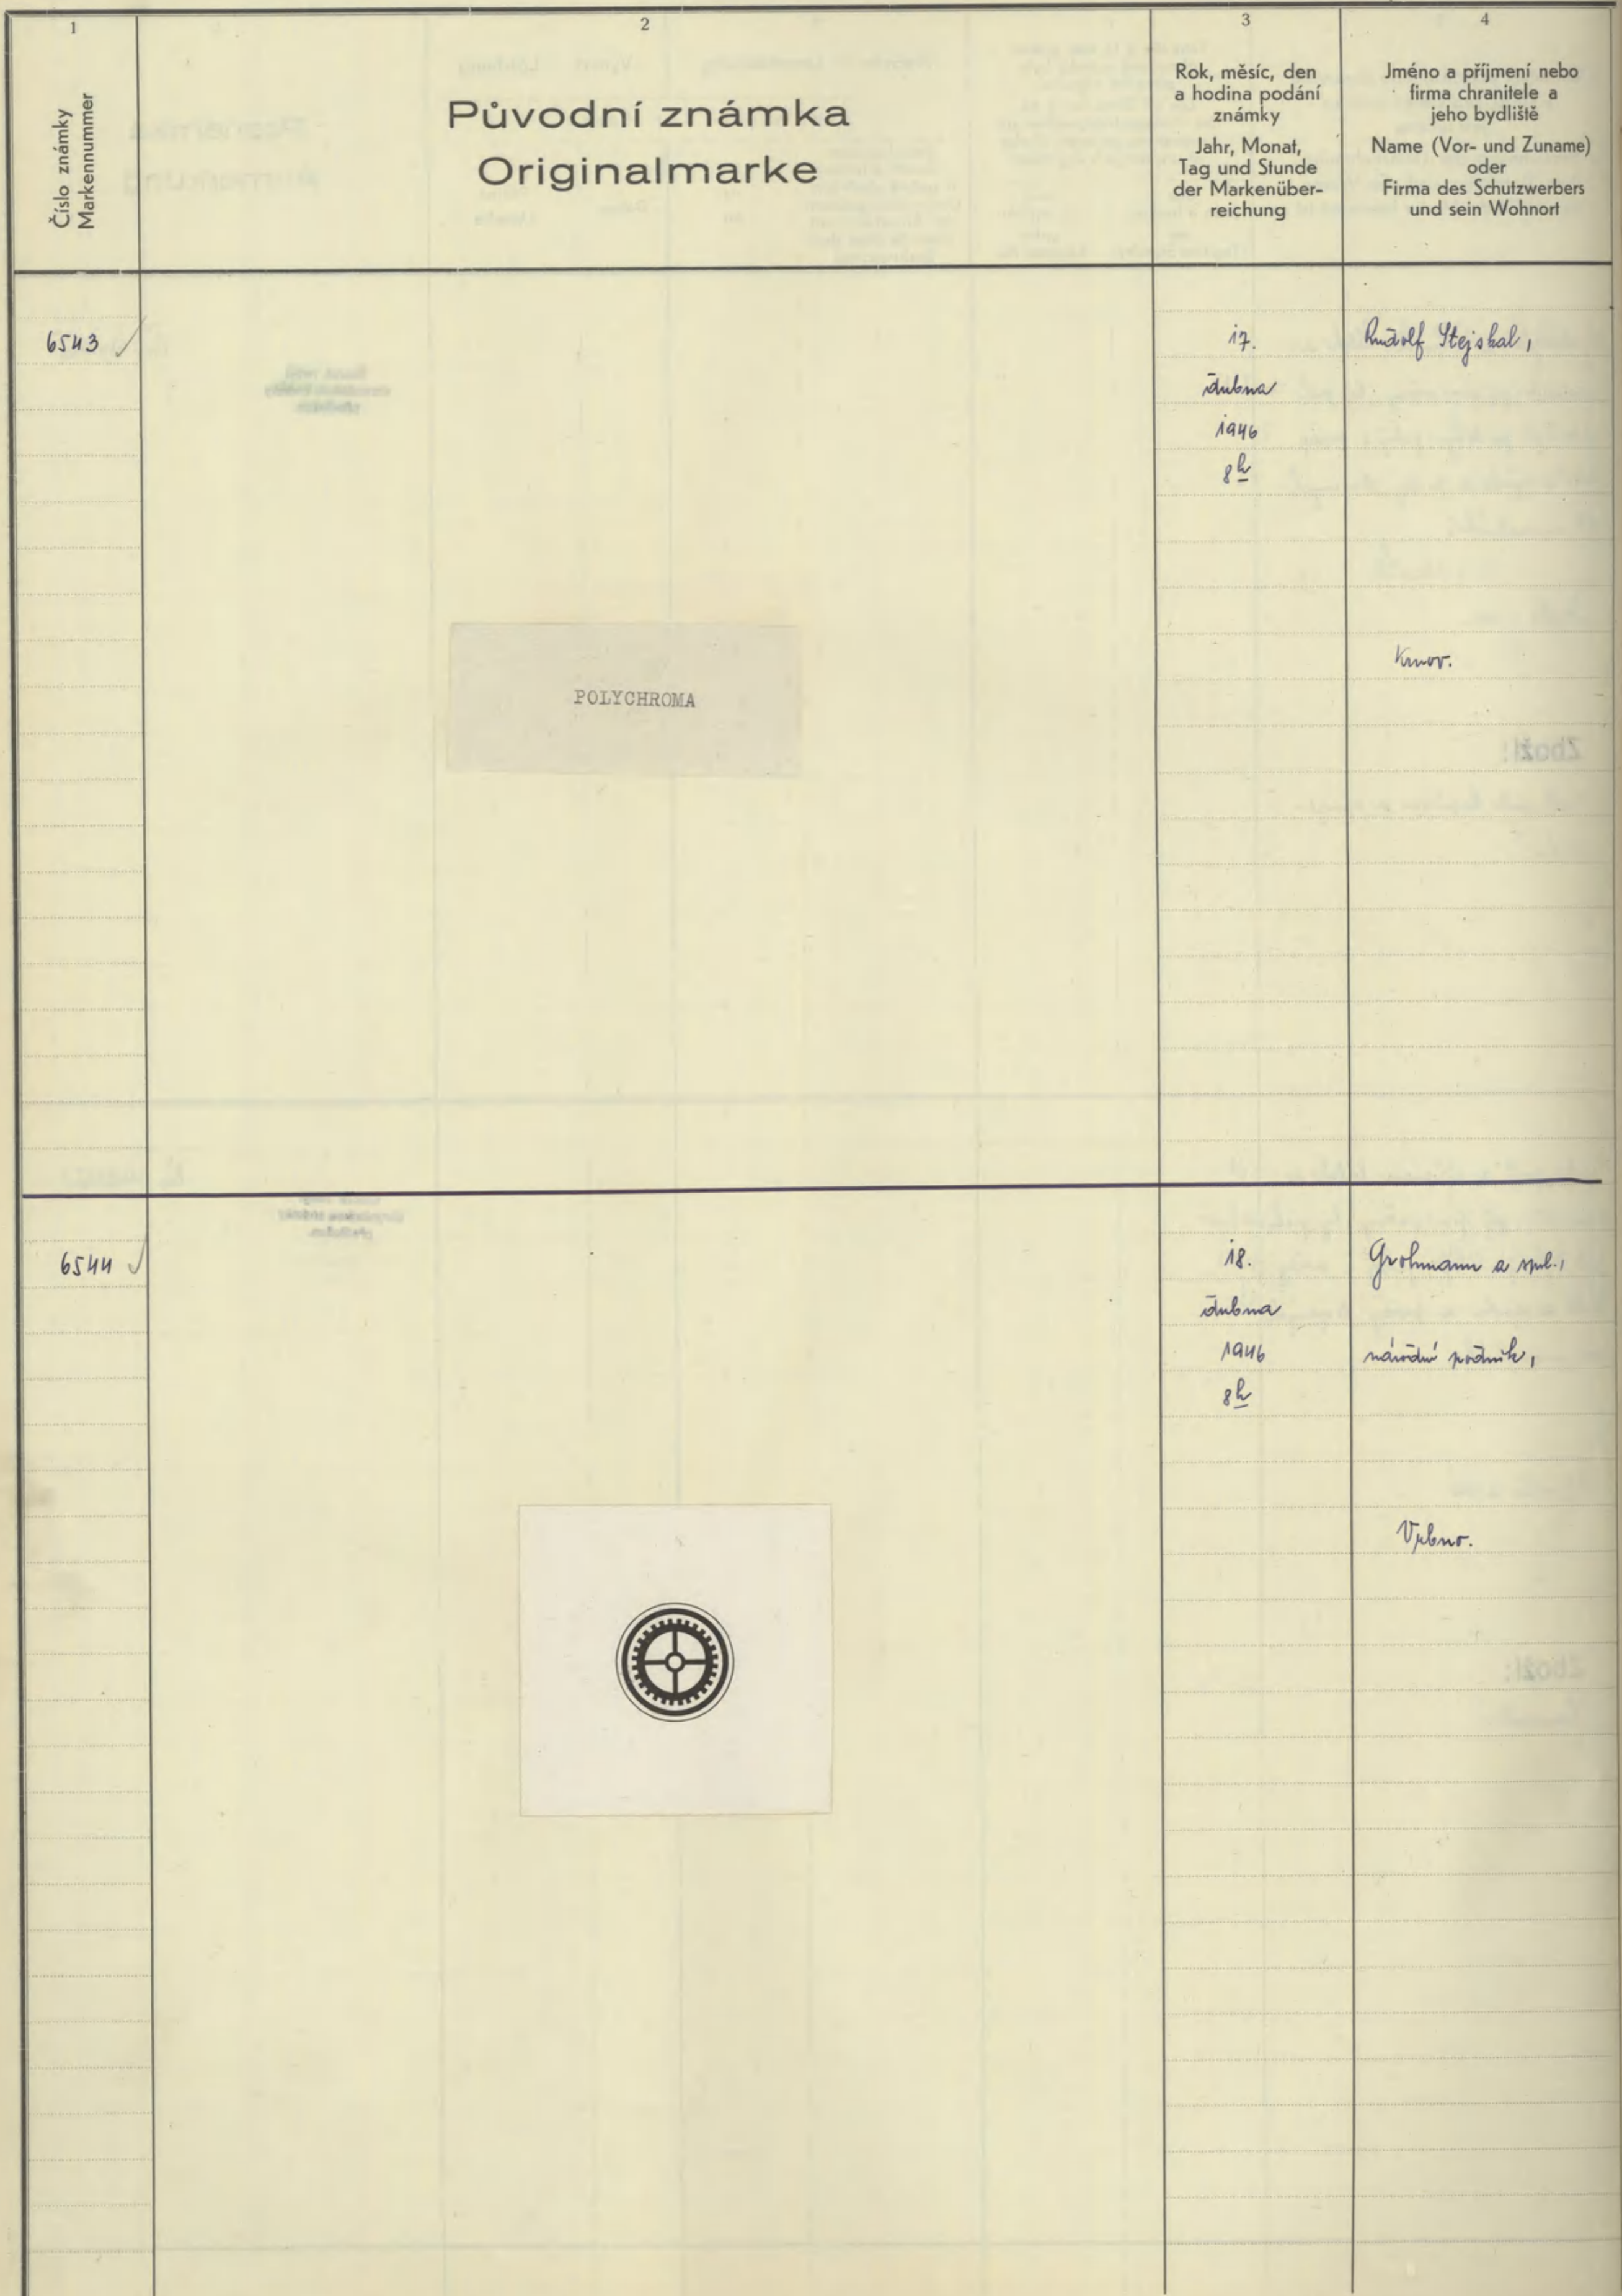 1
2
3
4
Číslo známky
Markennummer
Původní známka
Originalmarke
Rok, měsíc, den
a hodina podání
známky
Jahr, Monat,
Tag und Stunde
der Markenüber-
reichung
Jméno a příjmení nebo
firma chranitele a
jeho bydliště
Name (Vor- und Zuname)
oder
Firma des Schutzwerbers
und sein Wohnort
6543
17.
dubna
1946
8h
Rudolf Stejskal,
Krnov.
POLYCHROMA
6544
18.
dubna
1946
8h
Grohmann a spol.,
národní podnik,
Vrbno.
Zboží:
Zboží: